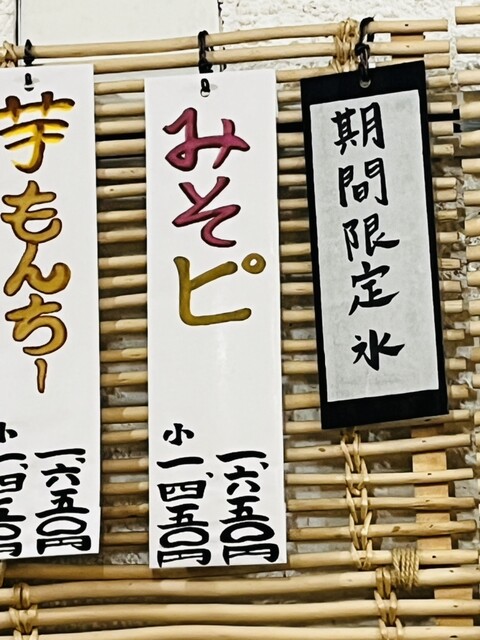 期間限定氷
みそピ
一、六五〇円
小一、四五〇円
芋もんちー
一、六五〇円
小一、四五〇円